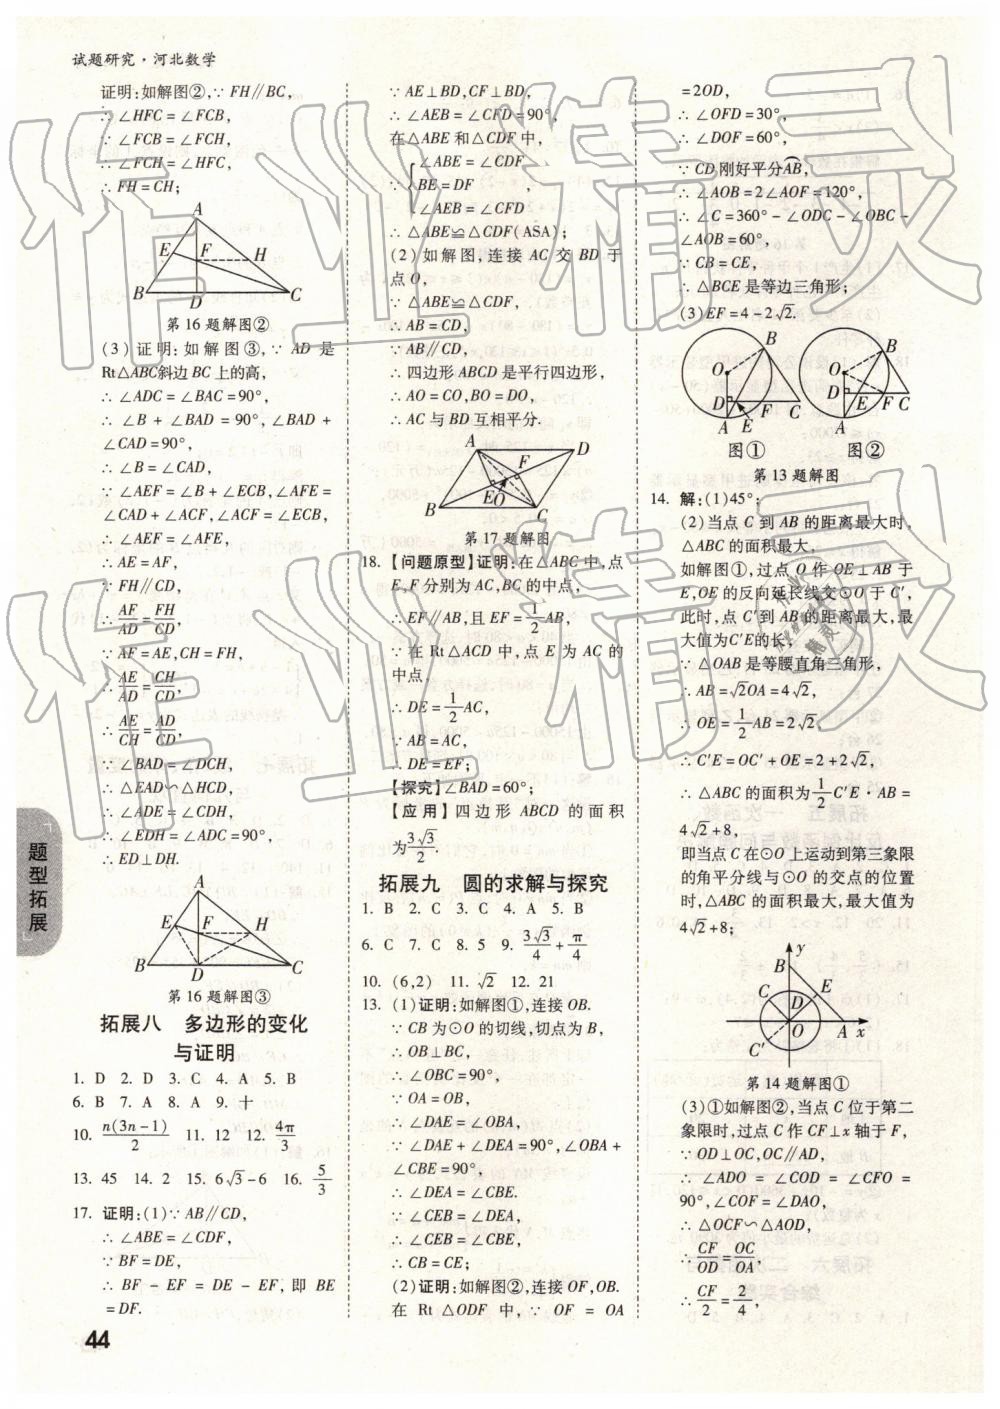 试题研究·河北数学
证明:如解图②,∵FH∥BC,
∴∠HFC=∠FCB,
∵∠FCB=∠FCH,
∴∠FCH=∠HFC,
∴FH=CH;
A
E
F
H
B
D
C
第16题解图②
(3)证明:如解图③,∵AD是
Rt△ABC斜边BC上的高,
∴∠ADC=∠BAC=90°,
∴∠B+∠BAD=90°,∠BAD+
∠CAD=90°,
∴∠B=∠CAD,
∵∠AEF=∠B+∠ECB,∠AFE=
∠CAD+∠ACF,∠ACF=∠ECB,
∴∠AEF=∠AFE,
∴AE=AF,
∵FH∥CD,
∴AF/AD=FH/CD,
∵AF=AE,CH=FH,
∴AE/AD=CH/CD,
∴AE/CH=AD/CD,
∵∠BAD=∠DCH,
∴△EAD∽△HCD,
∴∠ADE=∠CDH,
∴∠EDH=∠ADC=90°,
∴ED⊥DH.
A
E
F
H
B
D
C
第16题解图③
拓展八 多边形的变化
与证明
1. D 2. D 3. C 4. A 5. B
6. B 7. A 8. A 9. 十
10. n(3n-1)/2 11. 12 12. 4π/3
13. 45 14. 2 15. 6√3-6 16. 5/3
17. 证明:(1)∵AB∥CD,
∴∠ABE=∠CDF,
∵BF=DE,
∴BF-EF=DE-EF,即BE
=DF.
∵AE⊥BD,CF⊥BD,
∴∠AEB=∠CFD=90°,
在△ABE和△CDF中,
∵{∠ABE=∠CDF
BE=DF ,
∠AEB=∠CFD
∴△ABE≌△CDF(ASA);
(2)如解图,连接AC交BD于
点O,
∵△ABE≌△CDF,
∴AB=CD,
∵AB∥CD,
∴四边形ABCD是平行四边形,
∴AO=CO,BO=DO,
∴AC与BD互相平分.
A
D
F
E
O
B
C
第17题解图
18. 【问题原型】证明:在△ABC中,点
E,F分别为AC,BC的中点,
∴EF∥AB,且EF=1/2AB,
∵在Rt△ACD中,点E为AC的
中点,
∴DE=1/2AC,
∵AB=AC,
∴DE=EF;
【探究】∠BAD=60°;
【应用】四边形ABCD的面积
为3√3/2.
拓展九 圆的求解与探究
1. B 2. C 3. C 4. A 5. B
6. C 7. C 8. 5 9. 3√3/4+π/4
10. (6,2) 11. √2 12. 21
13. (1)证明:如解图①,连接OB.
∵CB为⊙O的切线,切点为B,
∴OB⊥BC,
∴∠OBC=90°,
∵OA=OB,
∴∠DAE=∠OBA,
∵∠DAE+∠DEA=90°,∠OBA+
∠CBE=90°,
∴∠DEA=∠CBE.
∵∠CEB=∠DEA,
∴∠CEB=∠CBE,
∴CB=CE;
(2)证明:如解图②,连接OF,OB.
在Rt△ODF中,∵OF=OA
=2OD,
∴∠OFD=30°,
∴∠DOF=60°,
∵CD刚好平分AB,
∴∠AOB=2∠AOF=120°,
∴∠C=360°-∠ODC-∠OBC-
∠AOB=60°,
∵CB=CE,
∴△BCE是等边三角形;
(3)EF=4-2√2.
B
O
D
F
C
A
E
图①
B
O
D
E
F
C
A
图②
第13题解图
14. 解:(1)45°;
(2)当点C到AB的距离最大时,
△ABC的面积最大,
如解图①,过点O作OE⊥AB于
E,OE的反向延长线交⊙O于C′,
此时,点C′到AB的距离最大,最
大值为C′E的长,
∵△OAB是等腰直角三角形,
∴AB=√2OA=4√2,
∴OE=1/2AB=2√2,
∴C′E=OC′+OE=2+2√2,
∴△ABC的面积为1/2C′E·AB=
4√2+8,
即当点C在⊙O上运动到第三象限
的角平分线与⊙O的交点的位置
时,△ABC的面积最大,最大值为
4√2+8;
y
B
C
D
E
O
A
x
C′
第14题解图①
(3)①如解图②,当点C位于第二
象限时,过点C作CF⊥x轴于F,
∵OD⊥OC,OC∥AD,
∴∠ADO=∠COD=∠CFO=
90°,∠COF=∠DAO,
∴△OCF∽△AOD,
∴CF/OD=OC/OA,
∴CF/2=2/4,
题型拓展
44
作业精灵
作业精灵